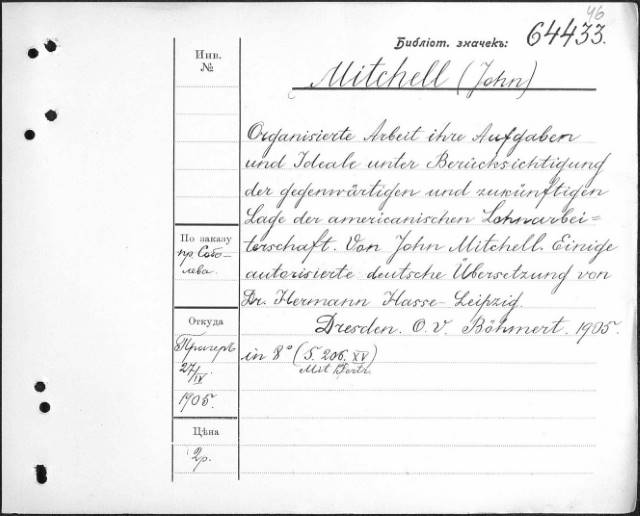 46
Библіот. значекъ: 64433.
Инв.
№
Mitchell (John)
Organisierte Arbeit ihre Aufgaben
und Ideale unter Berücksichtigung
der gegenwärtigen und zukünftigen
Lage der americanischen Lohnarbei=
terschaft. Von John Mitchell. Einige
autorisierte deutsche Übersetzung von
Dr. Hermann Hasse-Leipzig.
Dresden. O. V. Böhmert. 1905.
in 8° (S. 206. XV)
Mit Portr.
По заказу
пр. Собо-
лева.
Откуда
27/IV
1905.
Цѣна
2р.